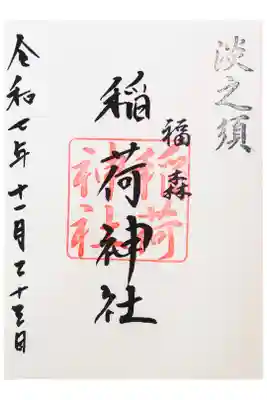 淡之須
福森
稲荷神社
稲荷
神社
令和七年十一月二十三日